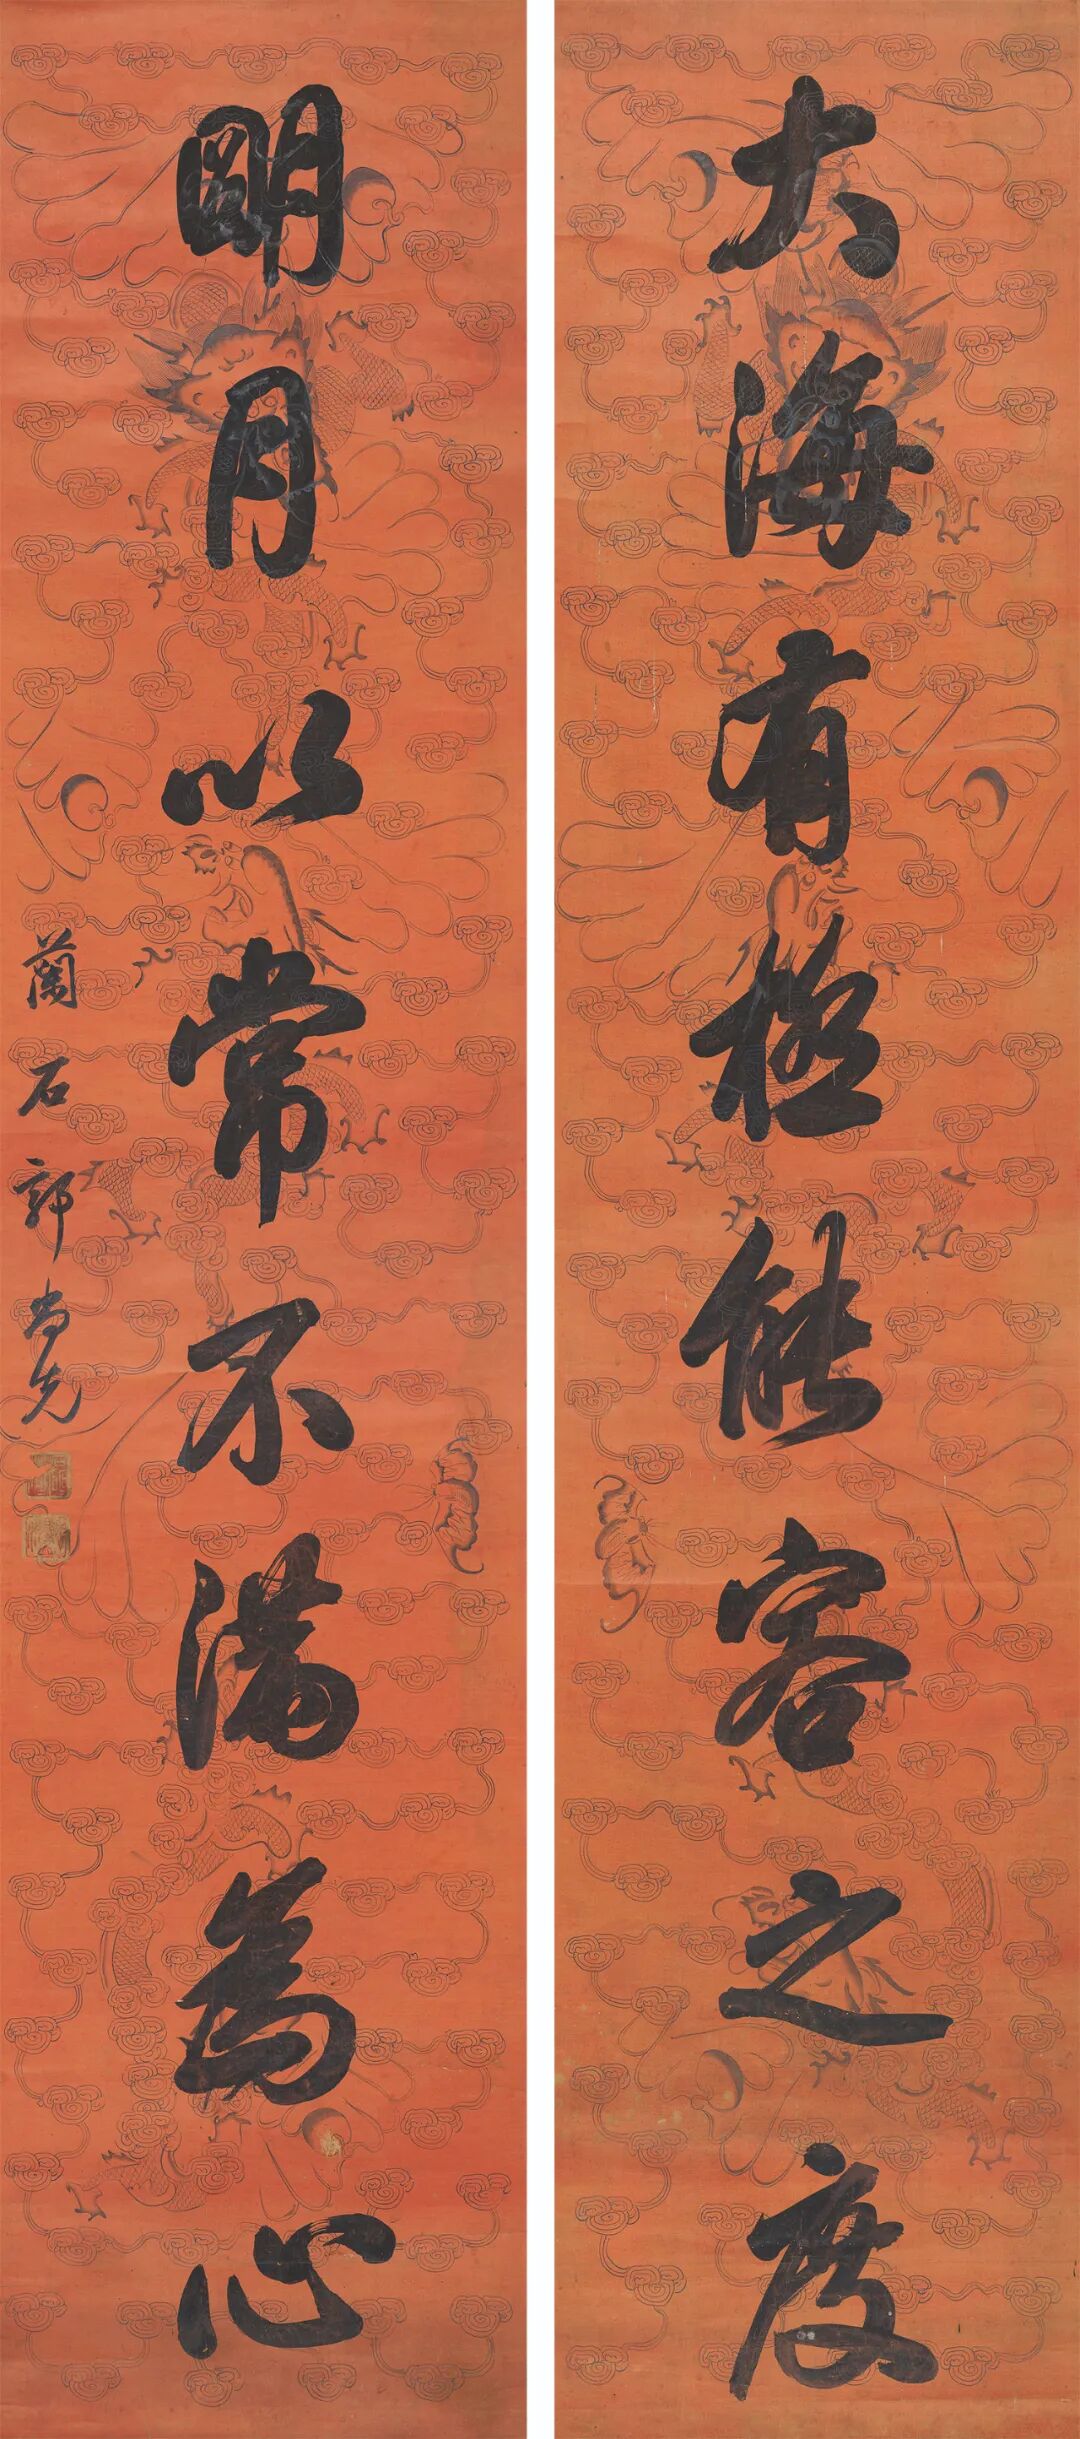 大海有極能容之度
明月以常不滿為心
蘭石郭尚先